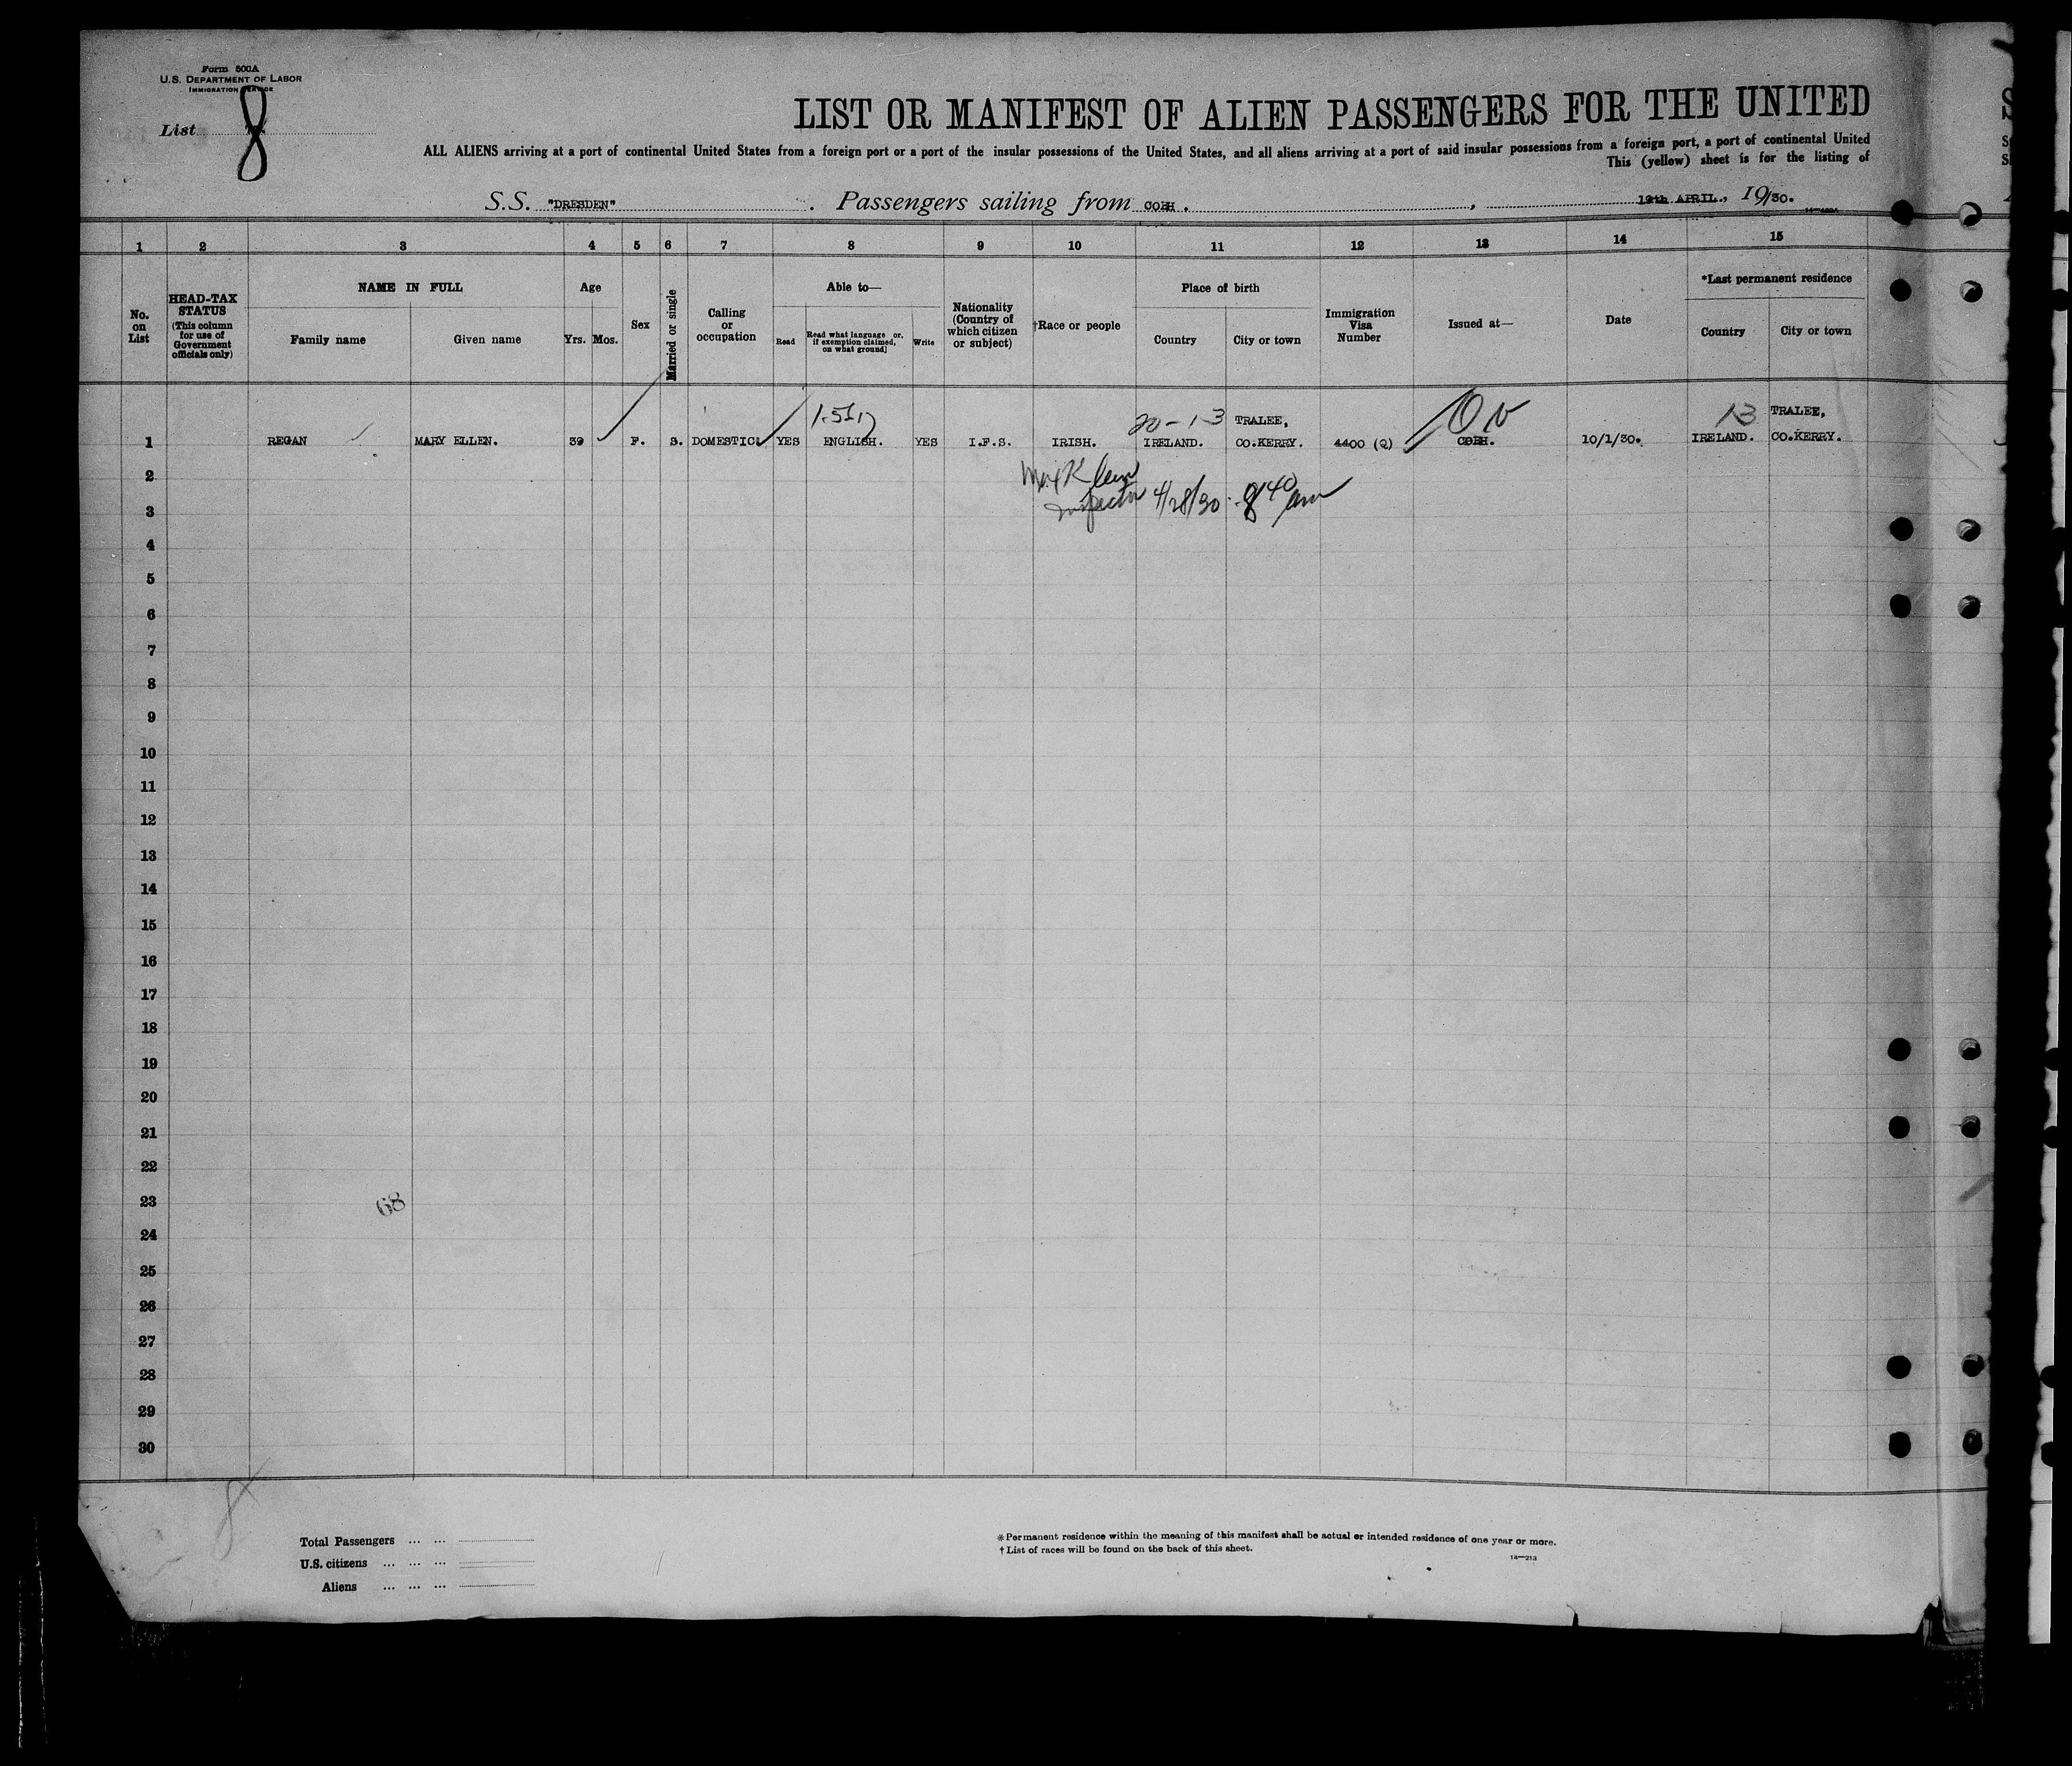 Form 500A
U.S. DEPARTMENT OF LABOR
IMMIGRATION SERVICE
List 8
LIST OR MANIFEST OF ALIEN PASSENGERS FOR THE UNITED
ALL ALIENS arriving at a port of continental United States from a foreign port or a port of the insular possessions of the United States, and all aliens arriving at a port of said insular possessions from a foreign port, a port of continental United
This (yellow) sheet is for the listing of
S.S. "DRESDEN" . Passengers sailing from COBH . , 19th APRIL., 19/30.
1 2 3 4 5 6 7 8 9 10 11 12 13 14 15
No. on List
HEAD-TAX STATUS (This column for use of Government officials only)
NAME IN FULL
Family name Given name
Age
Yrs. Mos.
Sex
Married or single
Calling or occupation
Able to—
Read
Read what language or, if exemption claimed, on what ground]
Write
Nationality (Country of which citizen or subject)
†Race or people
Place of birth
Country City or town
Immigration Visa Number
Issued at—
Date
*Last permanent residence
Country City or town
20-1-3 TRALEE, 13 TRALEE,
1 REGAN MARY ELLEN. 39 F. S. DOMESTIC. YES ENGLISH. YES I.F.S. IRISH. IRELAND. CO.KERRY. 4400 (Q) COBH. 10/1/30. IRELAND. CO.KERRY.
2
Inspector 4/28/30 840 am
3
4
5
6
7
8
9
10
11
12
13
14
15
16
17
18
19
20
21
22
23
68
24
25
26
27
28
29
30
8
Total Passengers ... ...
U.S. citizens ... ... ...
Aliens ... ... ...
* Permanent residence within the meaning of this manifest shall be actual or intended residence of one year or more.
† List of races will be found on the back of this sheet.
14—213